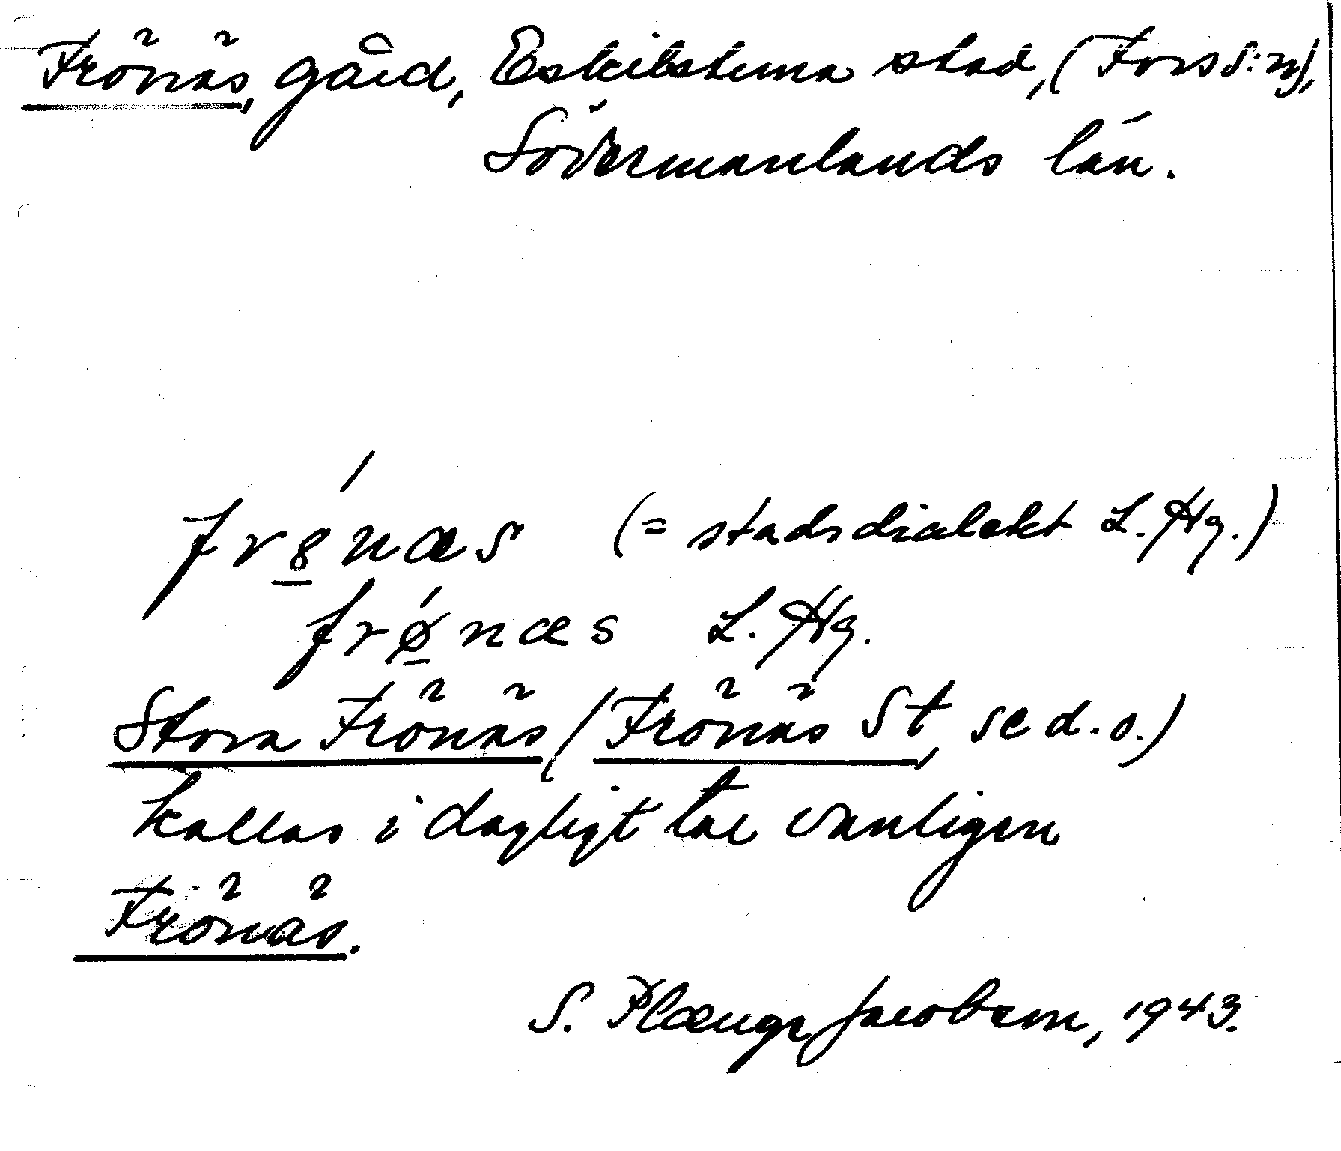 Frönäs, gård, Eskilstuna stad, (Fors s:n),
Södermanlands län.
fr8́næs (= stadsdialekt L. Hg.)
frǿnæs L. Hg.
Stora Frönäs (Frönäs St, se d. o.)
kallas i dagligt tal vanligen
Frönäs.
S. Plænge Jacobson, 1943.